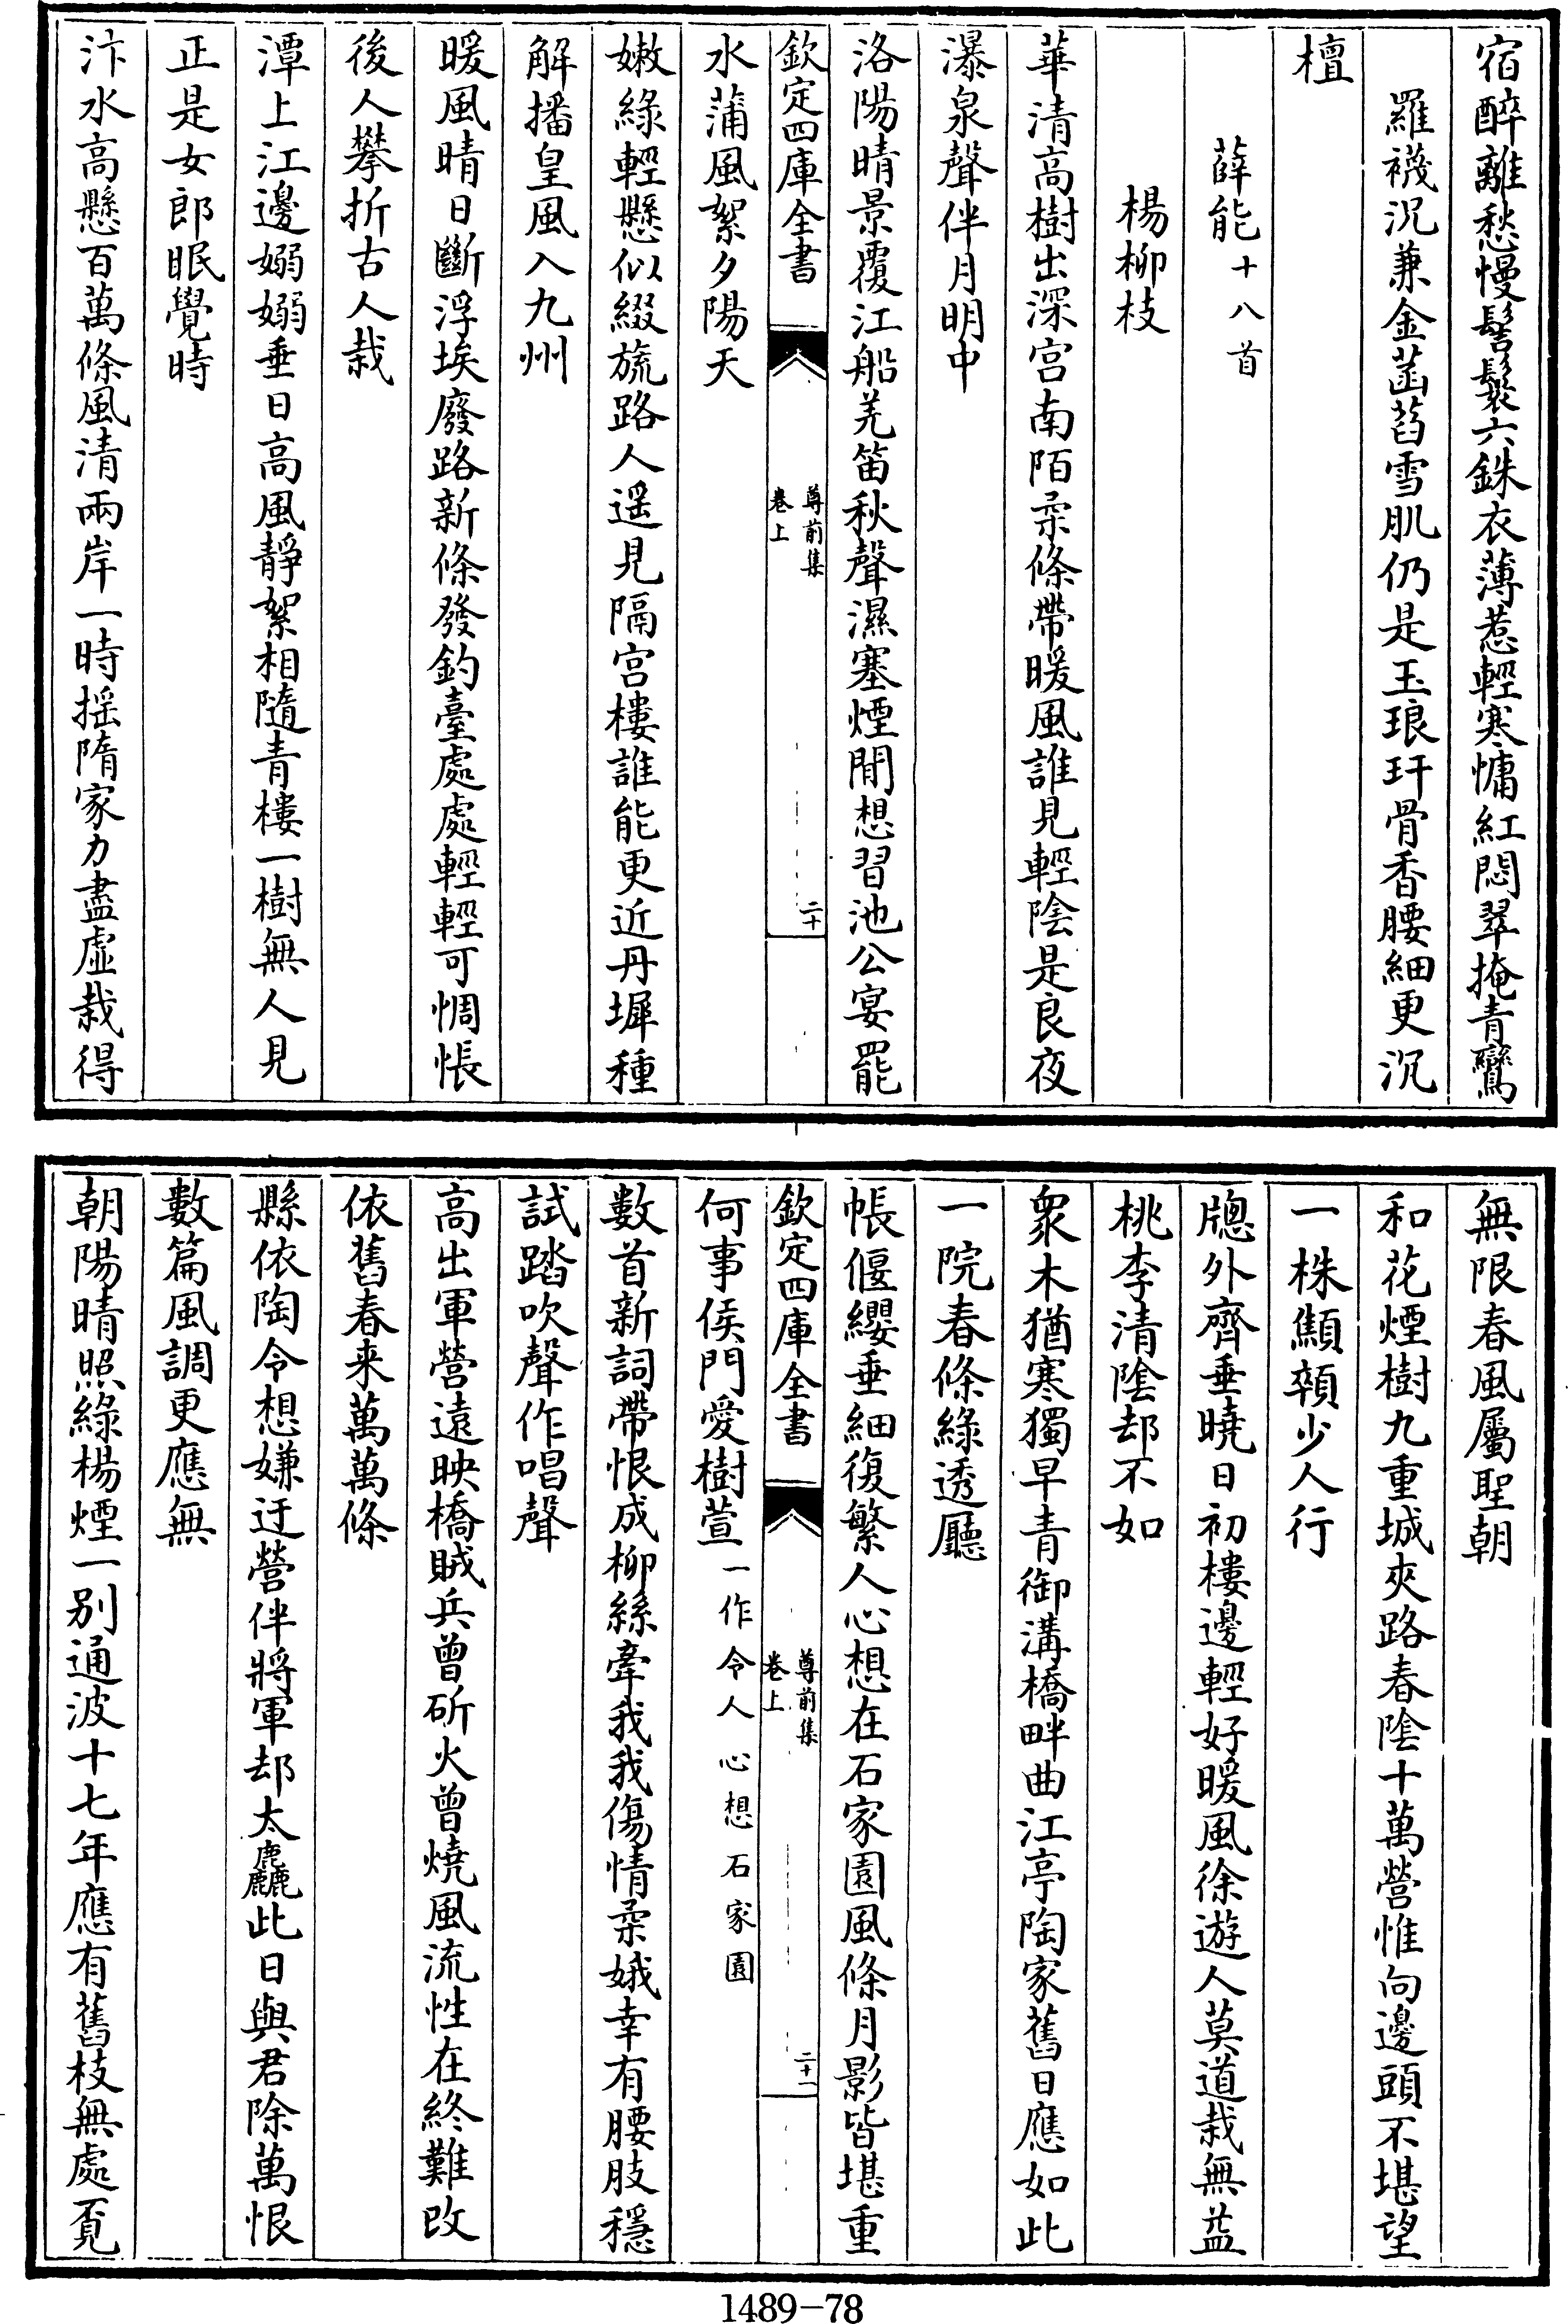 宿醉離愁慢髻鬟六銖衣薄惹輕寒慵紅悶翠掩青鸞
羅襪況兼金菡萏雪肌仍是玉琅玕骨香腰細更沉
檀
薛能十八首
楊柳枝
華清高樹出深宫南陌柔條帶暖風誰見輕陰是良夜
瀑泉聲伴月明中
洛陽晴景覆江船羌笛秋聲濕塞煙閒想習池公宴罷
欽定四庫全書
尊前集
卷上
二十
水蒲風絮夕陽天
嫩綠輕懸似綴旒路人遥見隔宫樓誰能更近丹墀種
解播皇風入九州
暖風晴日斷浮埃廢路新條發釣臺處處輕輕可惆悵
後人攀折古人栽
潭上江邊嫋嫋垂日高風靜絮相隨青樓一樹無人見
正是女郎眠覺時
汴水高懸百萬條風清兩岸一時摇隋家力盡虚栽得
無限春風屬聖朝
和花煙樹九重城夾路春陰十萬營惟向邊頭不堪望
一株顦顇少人行
牎外齊垂曉日初樓邊輕好暖風徐遊人莫道栽無益
桃李清陰却不如
衆木猶寒獨早青御溝橋畔曲江亭陶家舊日應如此
一院春條綠透廳
帳偃纓垂細復繁人心想在石家園風條月影皆堪重
欽定四庫全書
尊前集
卷上
二十一
何事侯門愛樹萱一作令人心想石家園
數首新詞帶恨成柳絲牽我我傷情柔娥幸有腰肢穩
試踏吹聲作唱聲
高出軍營遠映橋賊兵曾斫火曾燒風流性在終難改
依舊春来萬萬條
縣依陶令想嫌迂營伴將軍却太麤此日與君除萬恨
數篇風調更應無
朝陽晴照綠楊煙一别通波十七年應有舊枝無處覓
1489-78